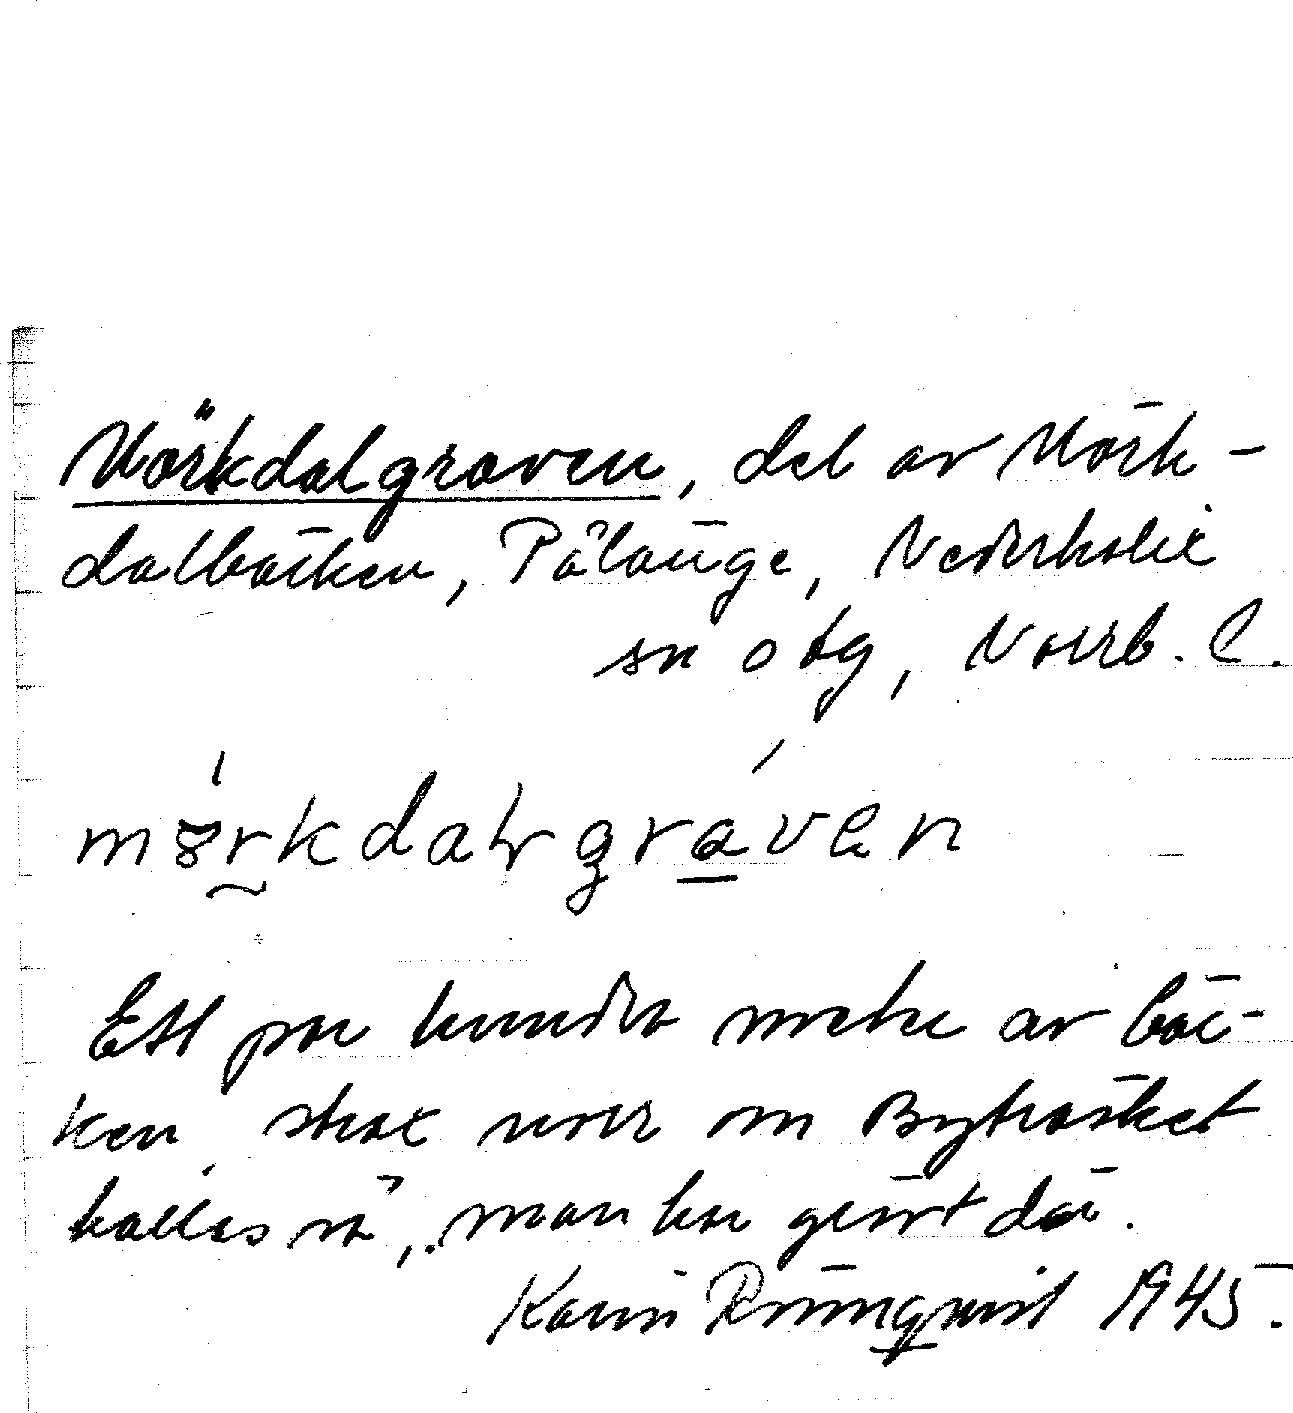 Mörkdalgraven, del av Mörk-
dalbäcken, Pålänge, Nederkalix
sn o tg, Norrb. l.
mörkdalgraven
Ett par hundra meter av bäc-
ken strax norr om Byträsket
kallas så, man har grävt där.
Karin Rönnqvist 1945.